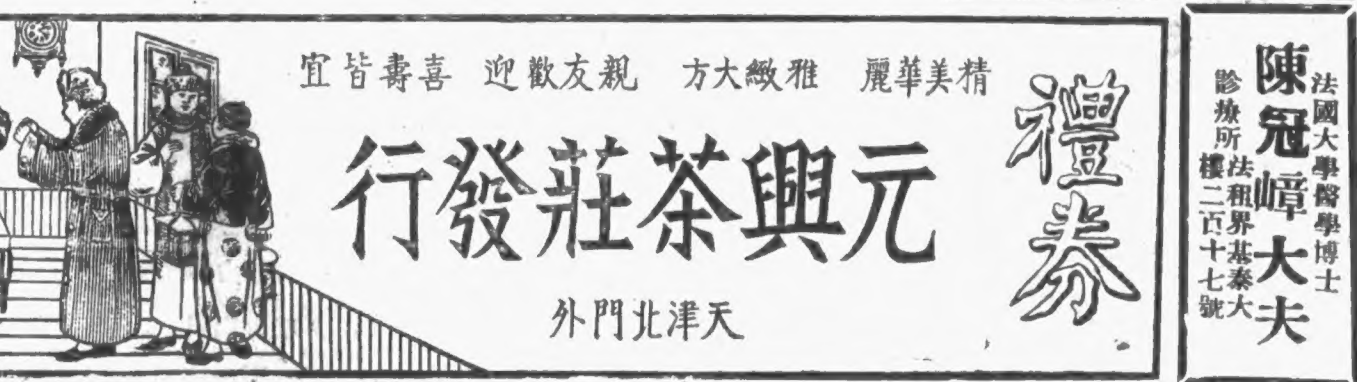 法國大學醫學博士
陳冠嶂大夫
診療所法租界基泰大樓二百十七號
禮券
精美華麗 雅緻大方 親友歡迎 喜壽皆宜
元興茶莊發行
天津北門外